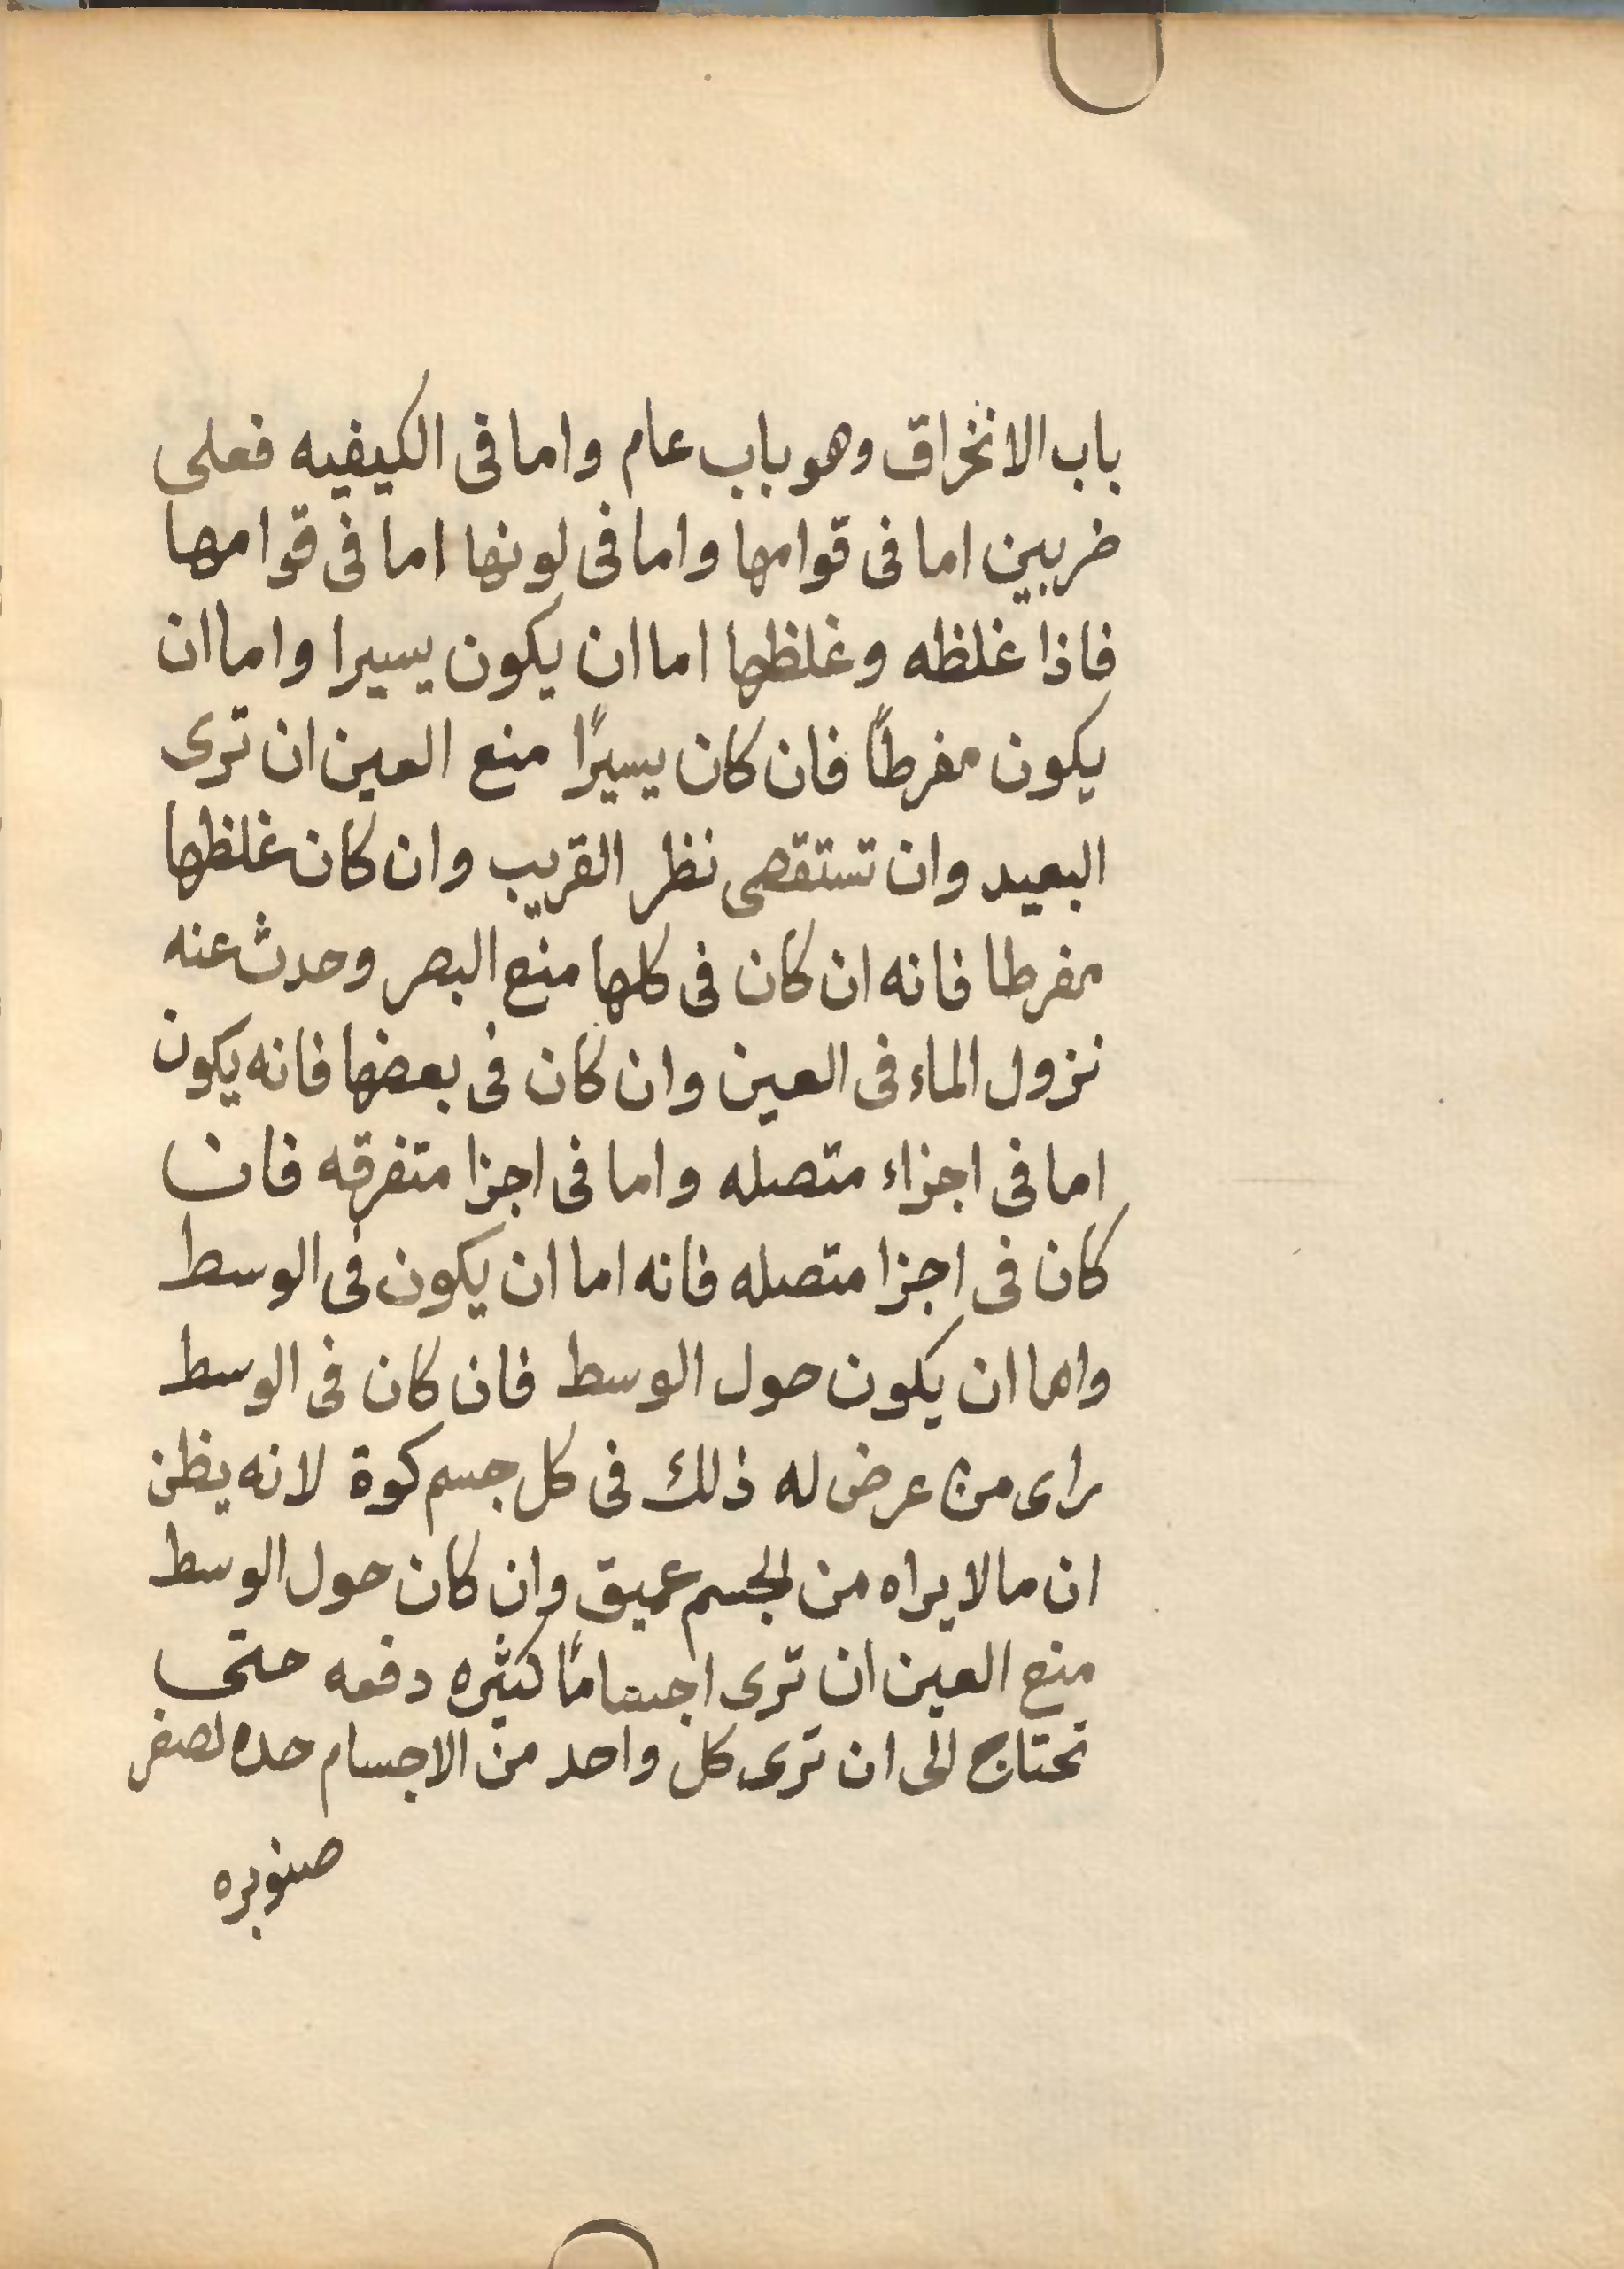 باب الانخراق وهو باب عام واما فى الكيفيه فعلى
ضربين اما فى قوامها واما فى لونها اما فى قوامها
فاذا غلظه وغلظها اما ان يكون يسيرا واما ان
يكون مفرطاً فان كان يسيرًا منع العين ان ترى
البعيد وان تستقصى نظر القريب وان كان غلظها
مفرطا فانه ان كان فى كلها منع البصر وحدث عنه
نزول الماء فى العين وان كان فى بعضها فانه يكون
اما فى اجزاء متصله واما فى اجزا متفرقه فان
كان فى اجزا متصله فانه اما ان يكون فى الوسط
واما ان يكون حول الوسط فان كان فى الوسط
راى من عرض له ذلك فى كل جسم كوة لانه يظن
ان ما لا يراه من الجسم عميق وان كان حول الوسط
منع العين ان ترى اجساماً كثيره دفعه حتى
تحتاج الى ان ترى كل واحد من الاجسام حده لصغر
صنوبره